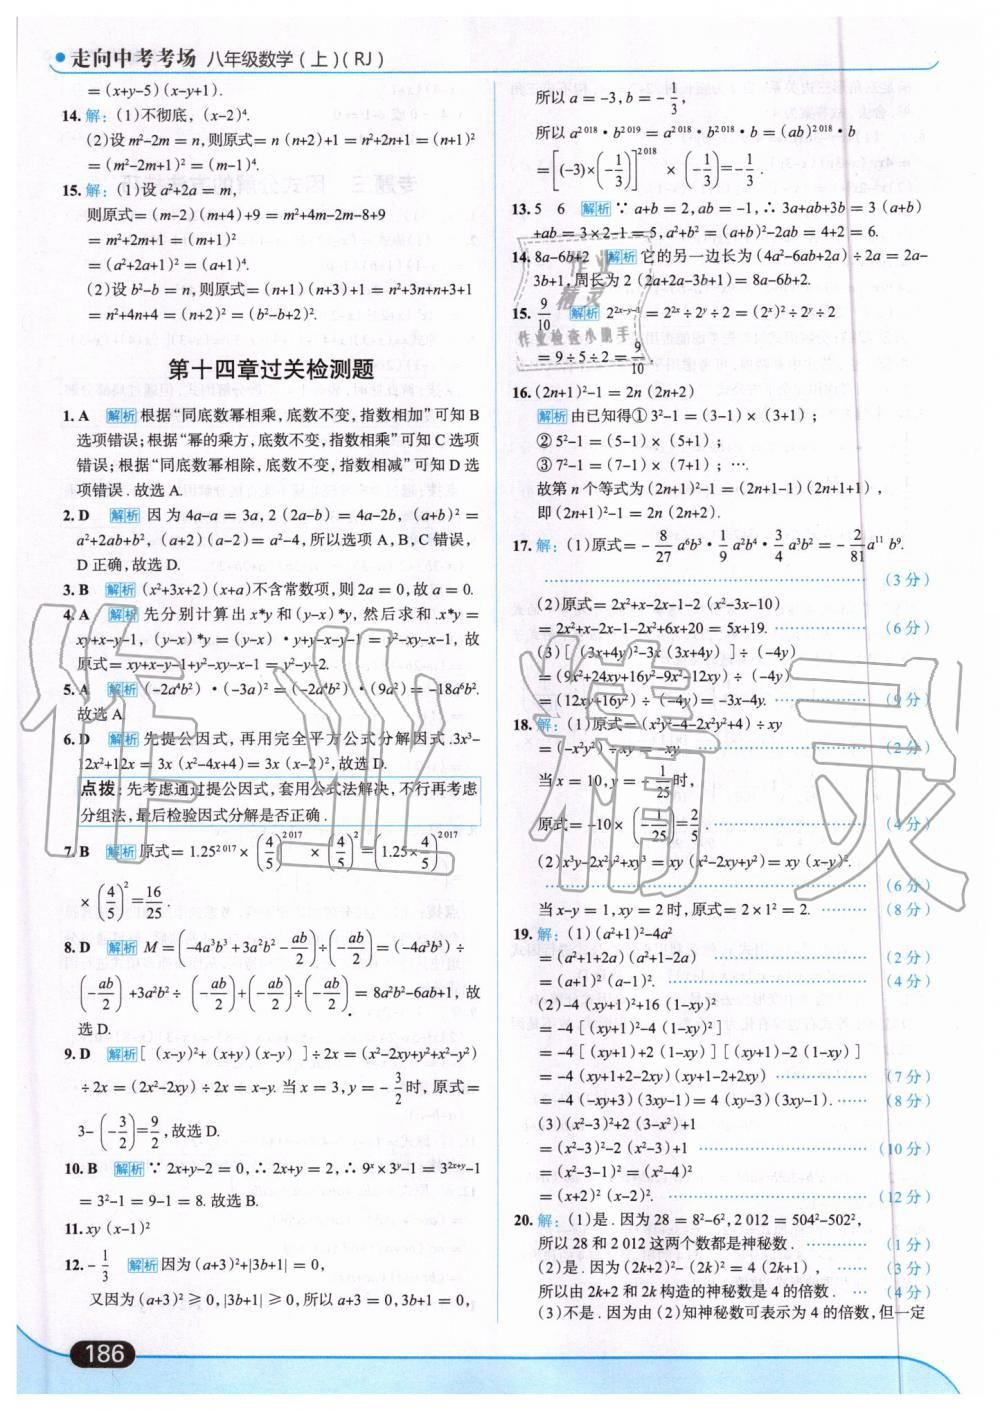 走向中考考场 八年级数学(上)(RJ)
=(x+y-5)(x-y+1).
14. 解:(1)不彻底, (x-2)⁴.
(2)设 m²-2m=n,则原式=n(n+2)+1=n²+2n+1=(n+1)²
=(m²-2m+1)²=(m-1)⁴.
15. 解:(1)设 a²+2a=m,
则原式=(m-2)(m+4)+9=m²+4m-2m-8+9
=m²+2m+1=(m+1)²
=(a²+2a+1)²=(a+1)⁴.
(2)设 b²-b=n,则原式=(n+1)(n+3)+1=n²+3n+n+3+1
=n²+4n+4=(n+2)²=(b²-b+2)².
第十四章过关检测题
1. A 解析 根据“同底数幂相乘,底数不变,指数相加”可知 B
选项错误;根据“幂的乘方,底数不变,指数相乘”可知 C 选项
错误;根据“同底数幂相除,底数不变,指数相减”可知 D 选
项错误.故选 A.
2. D 解析 因为 4a-a=3a,2(2a-b)=4a-2b, (a+b)²=
a²+2ab+b², (a+2)(a-2)=a²-4,所以选项 A,B,C 错误,
D 正确,故选 D.
3. B 解析 (x²+3x+2)(x+a)不含常数项,则 2a=0,故 a=0.
4. A 解析 先分别计算出 x*y 和 (y-x)*y,然后求和.x*y=
xy+x-y-1, (y-x)*y=(y-x)·y+y-x-y-1=y²-xy-x-1,故
原式=xy+x-y-1+y²-xy-x-1=y²-y-2.
5. A 解析 (-2a⁴b²)·(-3a)²=(-2a⁴b²)·(9a²)=-18a⁶b².
故选 A.
6. D 解析 先提公因式,再用完全平方公式分解因式.3x³-
12x²+12x=3x(x²-4x+4)=3x(x-2)²,故选 D.
点拨:先考虑通过提公因式,套用公式法解决,不行再考虑
分组法,最后检验因式分解是否正确.
7. B 解析 原式=1.25²⁰¹⁷×(4/5)²⁰¹⁷×(4/5)²=(1.25×4/5)²⁰¹⁷
×(4/5)²=16/25.
8. D 解析 M=(-4a³b³+3a²b²-ab/2)÷(-ab/2)=(-4a³b³)÷
(-ab/2)+3a²b²÷(-ab/2)+(-ab/2)÷(-ab/2)=8a²b²-6ab+1,故
选 D.
9. D 解析 [(x-y)²+(x+y)(x-y)]÷2x=(x²-2xy+y²+x²-y²)
÷2x=(2x²-2xy)÷2x=x-y.当 x=3,y=-3/2时,原式=
3-(-3/2)=9/2,故选 D.
10. B 解析 ∵2x+y-2=0,∴2x+y=2,∴9ˣ×3ʸ-1=3²ˣ⁺ʸ-1
=3²-1=9-1=8.故选 B.
11. xy(x-1)²
12. -1/3 解析 因为(a+3)²+|3b+1|=0,
又因为(a+3)²≥0,|3b+1|≥0,所以 a+3=0,3b+1=0,
所以 a=-3,b=-1/3,
所以 a²⁰¹⁸·b²⁰¹⁹=a²⁰¹⁸·b²⁰¹⁸·b=(ab)²⁰¹⁸·b
=[(-3)×(-1/3)]²⁰¹⁸×(-1/3)=-1/3.
13. 5 6 解析 ∵a+b=2,ab=-1,∴3a+ab+3b=3(a+b)
+ab=3×2-1=5,a²+b²=(a+b)²-2ab=4+2=6.
14. 8a-6b+2 解析 它的另一边长为(4a²-6ab+2a)÷2a=2a-
3b+1,周长为 2(2a+2a-3b+1)=8a-6b+2.
15. 9/10 解析 2²ˣ⁻ʸ⁻¹=2²ˣ÷2ʸ÷2=(2ˣ)²÷2ʸ÷2
=9÷5÷2=9/10
16. (2n+1)²-1=2n(2n+2)
解析 由已知得①3²-1=(3-1)×(3+1);
②5²-1=(5-1)×(5+1);
③7²-1=(7-1)×(7+1);….
故第 n 个等式为(2n+1)²-1=(2n+1-1)(2n+1+1),
即(2n+1)²-1=2n(2n+2).
17. 解:(1)原式=-8/27 a⁶b³·1/9 a²b⁴·3/4 a³b²=-2/81 a¹¹b⁹.
(3分)
(2)原式=2x²+x-2x-1-2(x²-3x-10)
=2x²+x-2x-1-2x²+6x+20=5x+19. (6分)
(3)[(3x+4y)²-3x(3x+4y)]÷(-4y)
=(9x²+24xy+16y²-9x²-12xy)÷(-4y)
=(12xy+16y²)÷(-4y)=-3x-4y. (9分)
18. 解:(1)原式=(x²y²-4-2x²y²+4)÷xy
=(-x²y²)÷xy=-xy (2分)
当 x=10,y=-1/25时,
原式=-10×(-1/25)=2/5. (4分)
(2)x³y-2x²y²+xy³=xy(x²-2xy+y²)=xy(x-y)².
(6分)
当 x-y=1,xy=2 时,原式=2×1²=2. (8分)
19. 解:(1)(a²+1)²-4a²
=(a²+1+2a)(a²+1-2a) (2分)
=(a+1)²(a-1)². (4分)
(2)-4(xy+1)²+16(1-xy)²
=-4[(xy+1)²-4(1-xy)²]
=-4[(xy+1)+2(1-xy)][(xy+1)-2(1-xy)]
=-4(xy+1+2-2xy)(xy+1-2+2xy) (7分)
=-4(-xy+3)(3xy-1)=4(xy-3)(3xy-1). (8分)
(3)(x²-3)²+2(3-x²)+1
=(x²-3)²-2(x²-3)+1 (10分)
=(x²-3-1)²=(x²-4)²
=(x+2)²(x-2)². (12分)
20. 解:(1)是.因为 28=8²-6²,2 012=504²-502²,
所以 28 和 2 012 这两个数都是神秘数. (1分)
(2)是.因为(2k+2)²-(2k)²=4(2k+1), (3分)
所以由 2k+2 和 2k 构造的神秘数是 4 的倍数. … (4分)
(3)不是.因为由(2)知神秘数可表示为 4 的倍数,但一定
186
作业精灵
作业
精灵
作业检查小助手